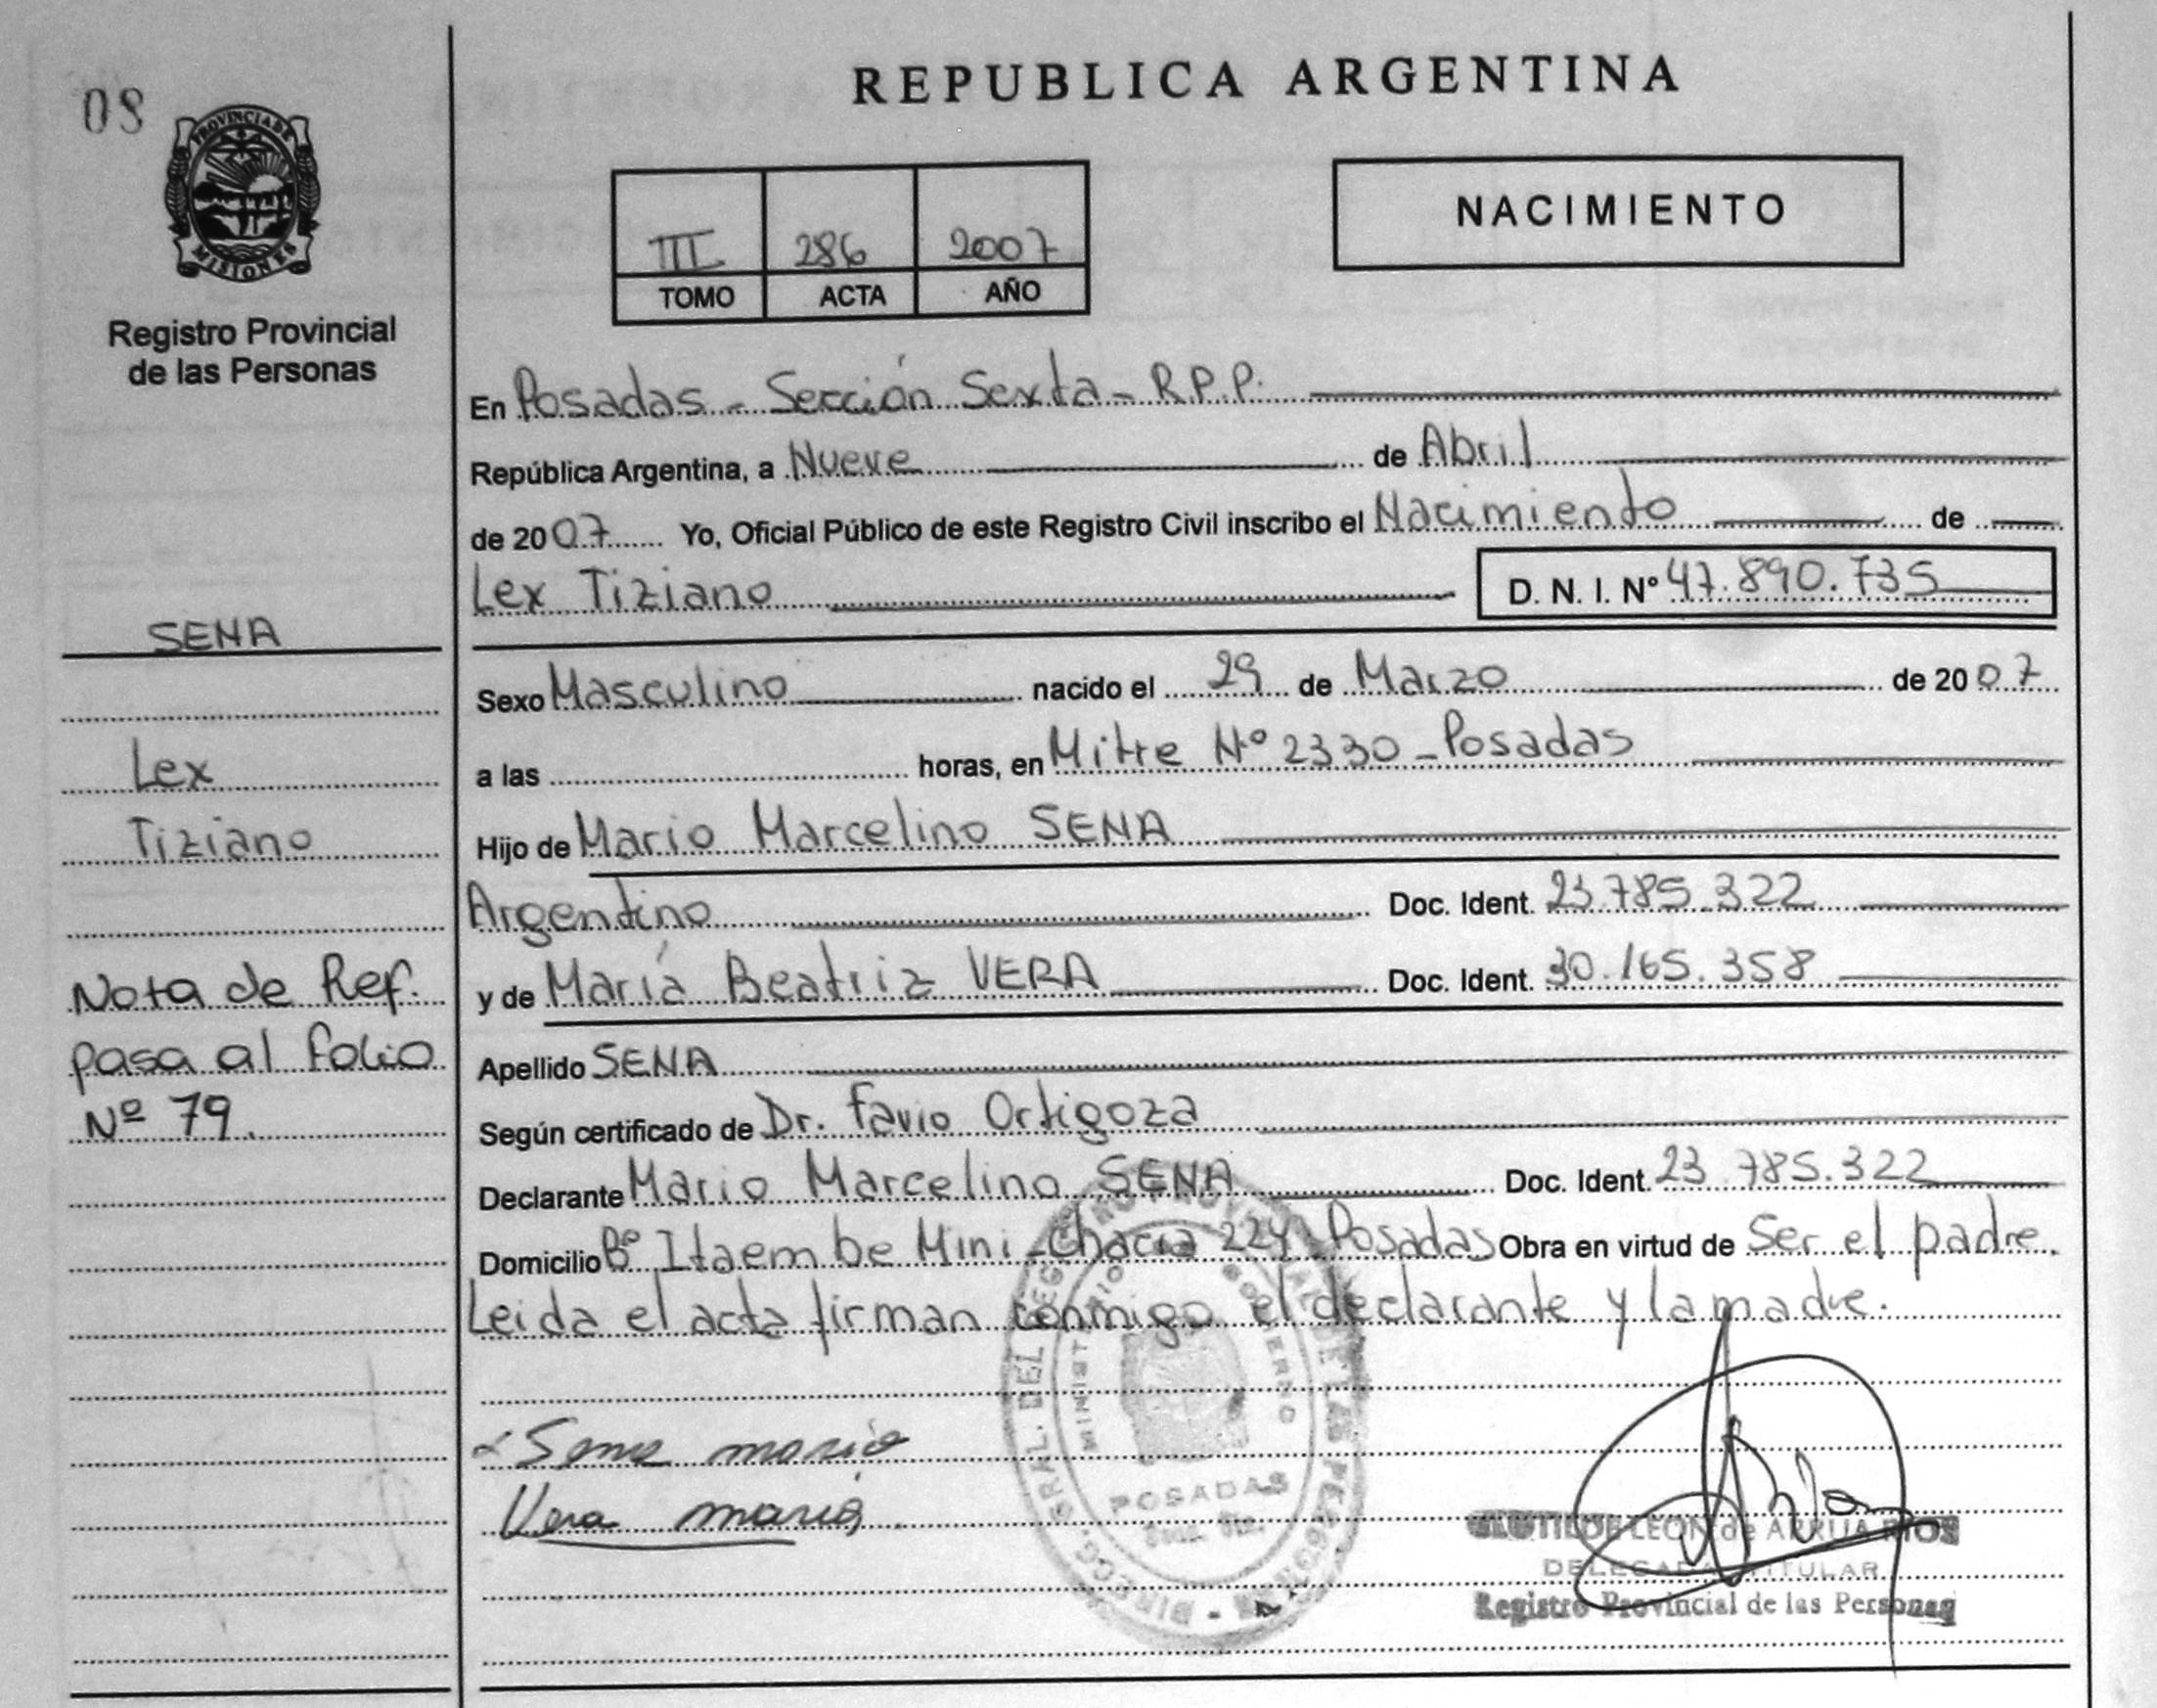 REPUBLICA ARGENTINA
08
PROVINCIA DE
MISIONES
Registro Provincial
de las Personas
III 286 2007
TOMO ACTA AÑO
NACIMIENTO
En Posadas - Sección Sexta - R.P.P.
República Argentina, a Nueve de Abril
de 2007 Yo, Oficial Público de este Registro Civil inscribo el Nacimiento de
Lex Tiziano D. N. I. N° 47.890.735
SENA
Lex
Tiziano
Nota de Ref.
pasa al folio
Nº 79.
Sexo Masculino nacido el 29 de Marzo de 2007
a las horas, en Mitre N° 2330 - Posadas
Hijo de Mario Marcelino SENA
Argentino Doc. Ident. 23.785.322
y de María Beatriz VERA Doc. Ident. 30.165.358
Apellido SENA
Según certificado de Dr. Favio Ortigoza
Declarante Mario Marcelino SENA Doc. Ident. 23.785.322
Domicilio B° Itaembe Mini - Chacra 224 Posadas Obra en virtud de Ser el padre.
Leida el acta firman conmigo el declarante y la madre.
Sena mario
Vera maria
POSADAS
CLOTILDE LEON de ARRUA RIOS
DELEGADA TITULAR
Registro Provincial de las Personas